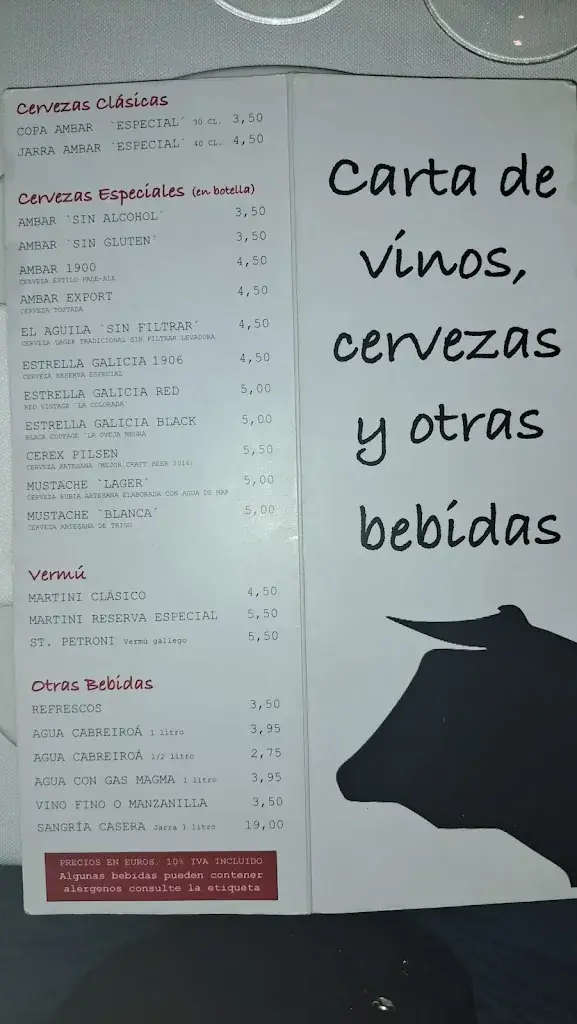 Cervezas Clásicas
COPA AMBAR `ESPECIAL´ 30 CL. 3,50
JARRA AMBAR `ESPECIAL´ 40 CL. 4,50
Cervezas Especiales (en botella)
AMBAR `SIN ALCOHOL´ 3,50
AMBAR `SIN GLUTEN´ 3,50
AMBAR 1900 4,50
CERVEZA ESTILO PALE-ALE
AMBAR EXPORT 4,50
CERVEZA TOSTADA
EL AGUILA `SIN FILTRAR´ 4,50
CERVEZA LAGER TRADICIONAL SIN FILTRAR LEVADURA
ESTRELLA GALICIA 1906 4,50
CERVEZA RESERVA ESPECIAL
ESTRELLA GALICIA RED 5,00
RED VINTAGE `LA COLORADA´
ESTRELLA GALICIA BLACK 5,00
BLACK COUPAGE `LA OVEJA NEGRA
CEREX PILSEN 5,50
CERVEZA ARTESANA (MEJOR CRAFT BEER 2016)
MUSTACHE `LAGER´ 5,00
CERVEZA RUBIA ARTESANA ELABORADA CON AGUA DE MAR
MUSTACHE `BLANCA´ 5,00
CERVEZA ARTESANA DE TRIGO
Vermú
MARTINI CLÁSICO 4,50
MARTINI RESERVA ESPECIAL 5,50
ST. PETRONI Vermú gallego 5,50
Otras Bebidas
REFRESCOS 3,50
AGUA CABREIROÁ 1 litro 3,95
AGUA CABREIROÁ 1/2 litro 2,75
AGUA CON GAS MAGMA 1 litro 3,95
VINO FINO O MANZANILLA 3,50
SANGRÍA CASERA Jarra 1 litro 19,00
PRECIOS EN EUROS. 10% IVA INCLUIDO
Algunas bebidas pueden contener
alérgenos consulte la etiqueta
Carta de
vinos,
cervezas
y otras
bebidas